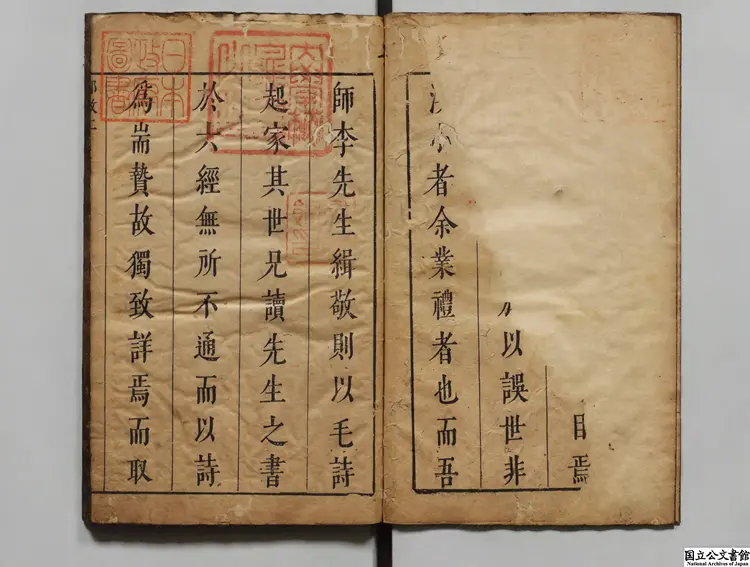 目焉
以誤世非
者余業禮者也而吾
師李先生緝敬則以毛詩
起家其世兄讀先生之書
於六經無所不通而以詩
為耑贄故獨致詳焉而取
日本
政府
圖書
国立公文書館
National Archives of Japan